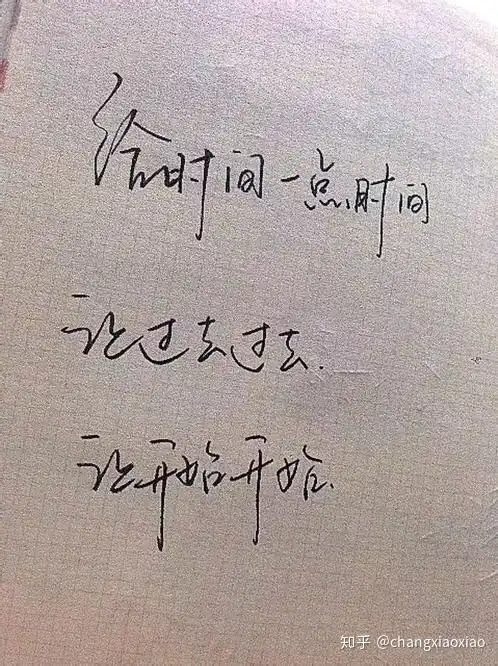 给时间一点时间
让过去过去.
让开始开始.
知乎 @changxiaoxiao